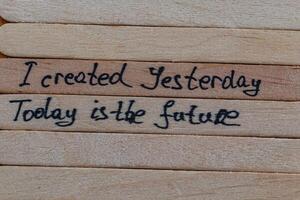 I created Yesterday
Today is the future